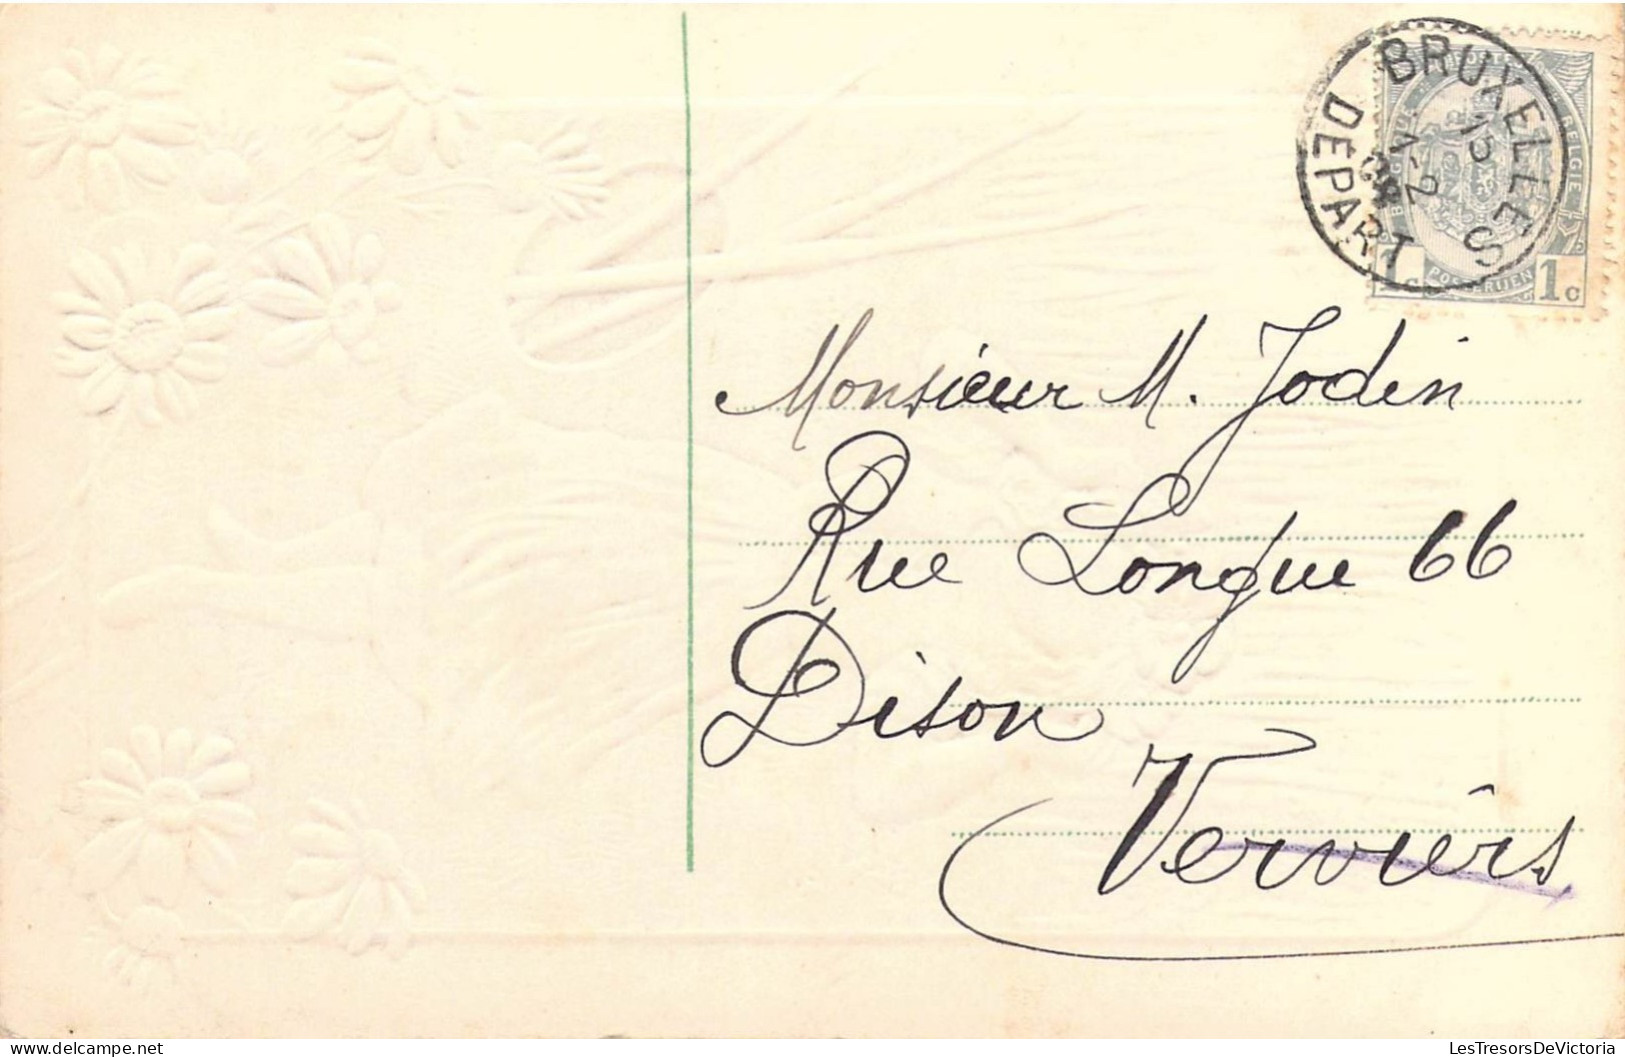 BRUXELLES
15
DEPART
BELGIE
POSTERIJEN
1c
Monsieur M. Jodin
Rue Longue 66
Dison
Verviers
delcampe.net
LesTresorsDeVictoria